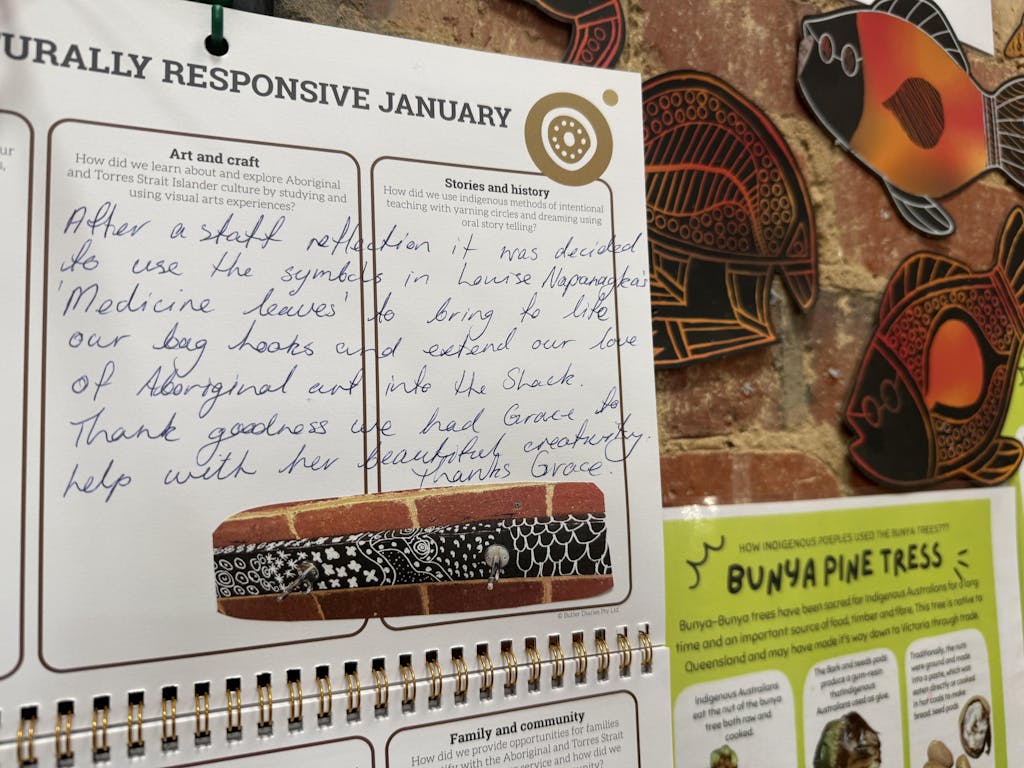 URALLY RESPONSIVE JANUARY
ur
Art and craft
How did we learn about and explore Aboriginal
and Torres Strait Islander culture by studying and
using visual arts experiences?
Stories and history
How did we use indigenous methods of intentional
teaching with yarning circles and dreaming using
oral story telling?
After a staff reflection it was decided
to use the symbols in Louise Napangka's
'Medicine leaves' to bring to life
our bag hooks and extend our love
of Aboriginal art into the Shack.
Thank goodness we had Grace to
help with her beautiful creativity.
Thanks Grace.
© Butler Diaries Pty Ltd
Family and community
How did we provide opportunities for families
tify with the Aboriginal and Torres Strait
service and how did we
unity?
HOW INDIGENOUS POEPLES USED THE BUNYA TREES???
BUNYA PINE TRESS
Bunya-Bunya trees have been sacred for Indigenous Australians for a long
time and an important source of food, timber and fibre. This tree is native to
Queensland and may have made it's way down to Victoria through trade.
Indigenous Australians
eat the nut of the bunya
tree both raw and
cooked.
The Bark and seeds pods
produce a gum-resin
thatindigenous
Australians used as glue.
Traditionally, the nuts
were ground and made
into a paste, which was
eaten directly or cooked
in hot coals to make
bread. seed pods